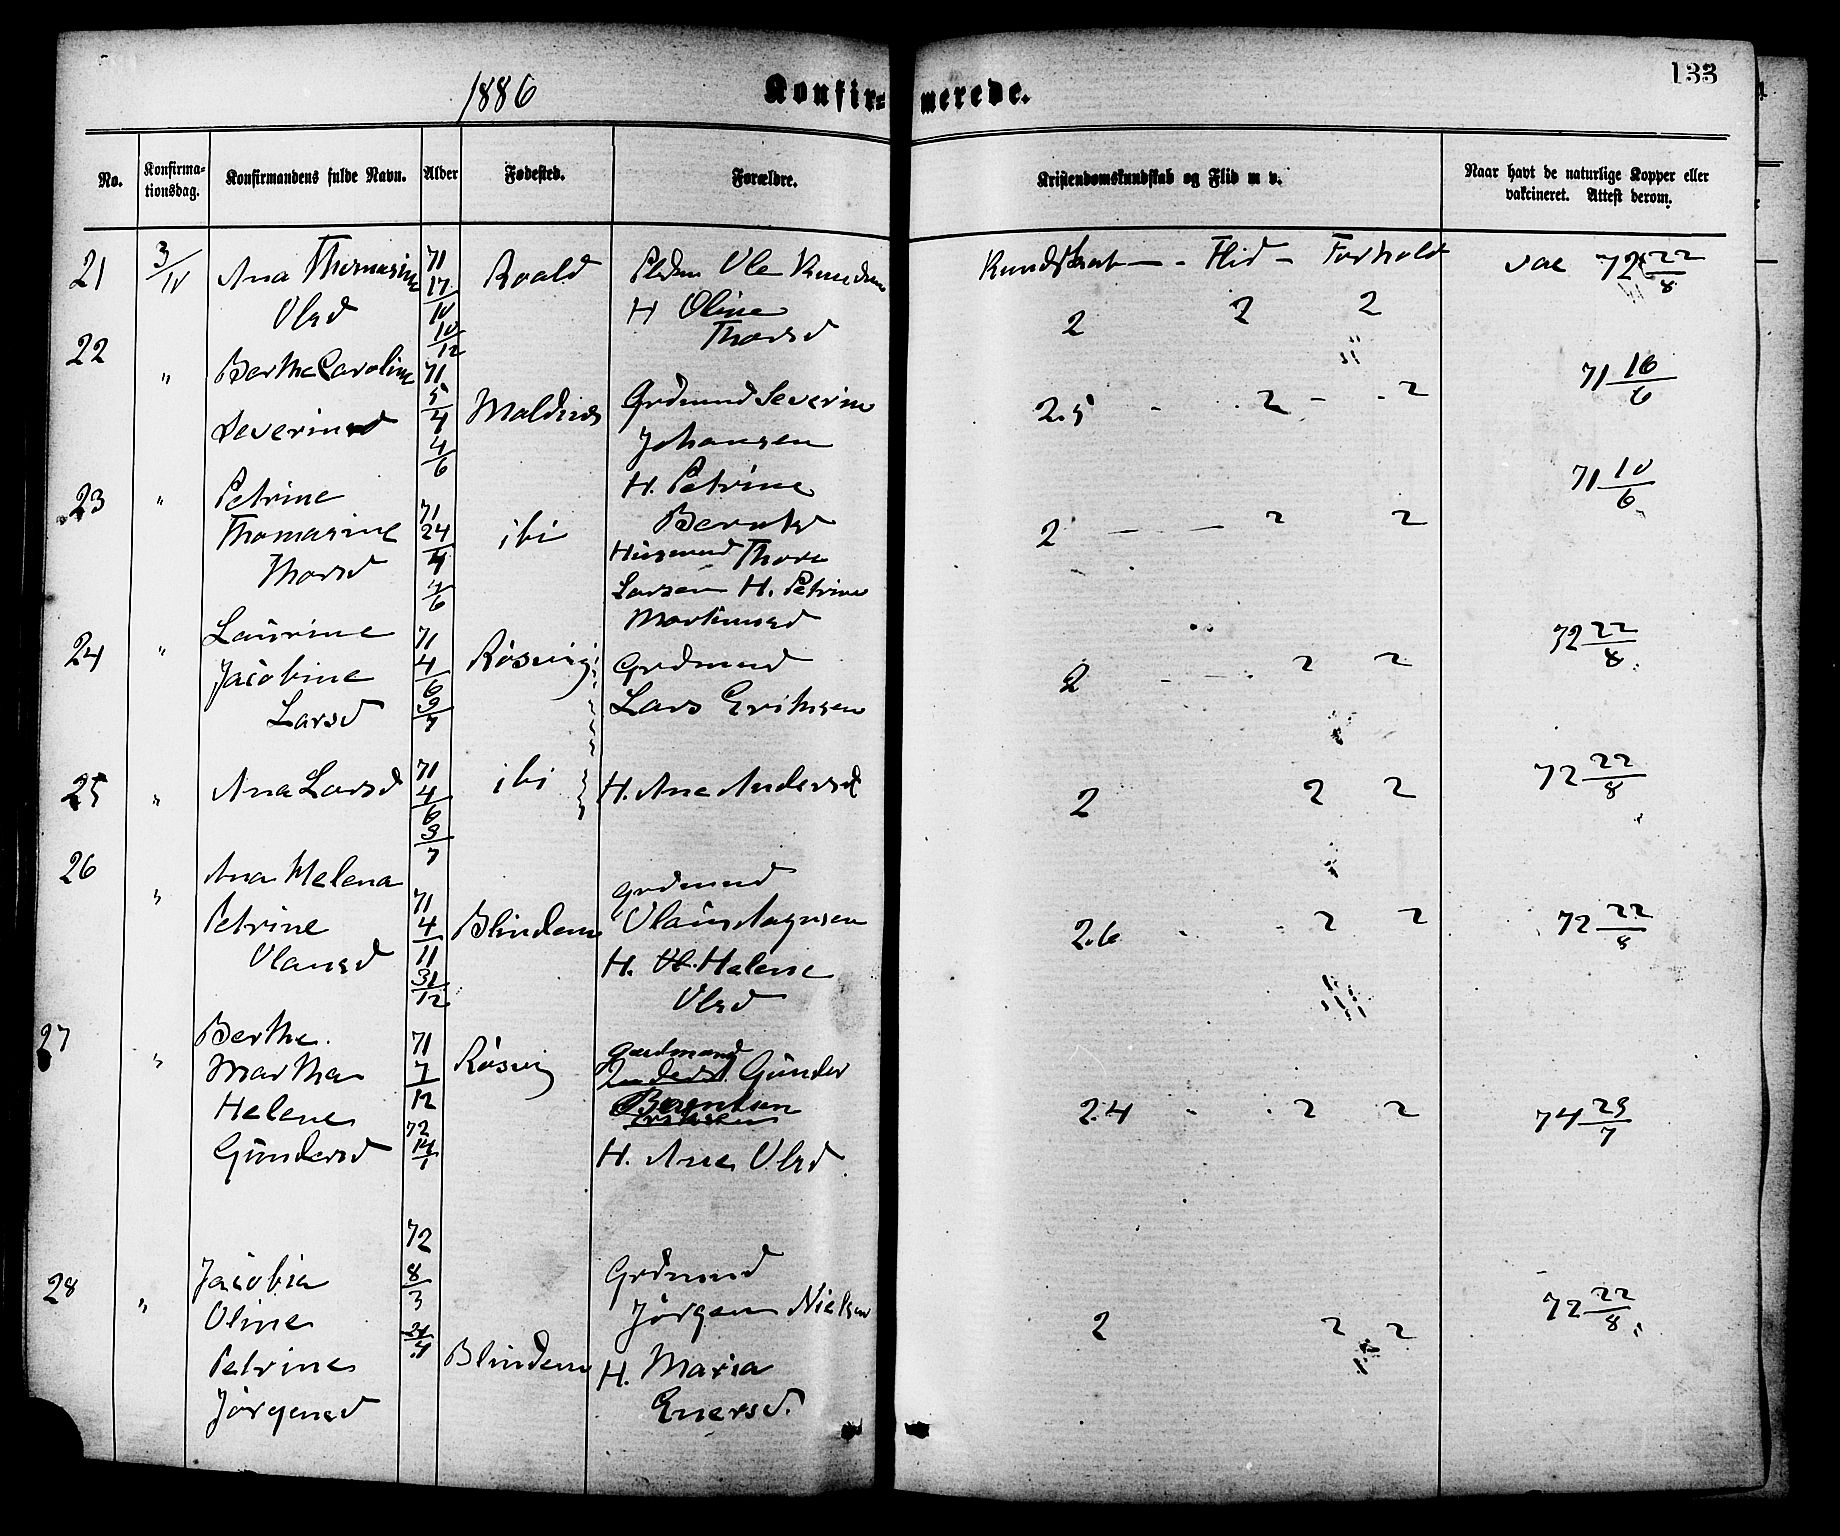 1886
Konfir= merede.
133
No.
Konfirma-
tionsdag.
Konfirmandens fulde Navn.
Alder
Fødested.
Forældre.
Kristendomskundskab og Flid m v.
Naar havt de naturlige Kopper eller
vakcineret. Attest derom.
21 3/10 Ana Thomasine 71 Roald Ole Knudsen Kundskab - Flid - Forhold vac 72 22/8
Olsd 17/10 H Oline 2 2 2
10/12 Thorsd
22 " Berthe Caroline 71 71 16/6
Severinsd 5/4 Moldnæs Grdmand Severin 2.5 - 2 - 2
4/6 Johansen
H. Petrine
Berntsd
23 " Petrine 71 71 10/6
Thomasine 24/4 ibi Husmand Thore 2 - - 2 2
Thorsd 4/6 Larsen H. Petrine
Martinusd
24 " Laurine 71 72 22/8
Jacobine 4/6 Røsvig Grdmand 2 - - 2 2
Larsd 3/7 Lars Eriksen
25 " Ana Larsd 71 ibi H. Ane Andersd 2 2 2 72 22/8
4/6
3/7
26 " Ana Helena 71 grdmand
Petrine 4/11 Blindem Olaus Aagesen 2.6 - - 2 2 72 22/8
Olausd 31/12 H. Helene
Olsd
27 " Berthe 71 gaardmand
Martha 7/12 Røsvig Gunder
Helene 72 Berntsen 2.4 - - 2 2 74 29/7
Gundersd 14/1 H. Ane Olsd
28 " Jacobia 72 Grdmand
Oline 8/3 Jørgen Nielsen 2 2 2 72 22/8
Petrine Blindem H. Maria
Jørgensd Enersd.